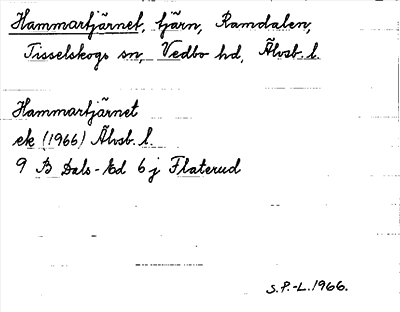 Hammartjärnet, tjärn, Ramdalen,
Tisselskogs sn, Vedbo hd, Älvsb. l.
Hammartjärnet
ek (1966) Älvsb. l.
9 B Dals-Ed 6 j Flaterud
S.P.-L. 1966.